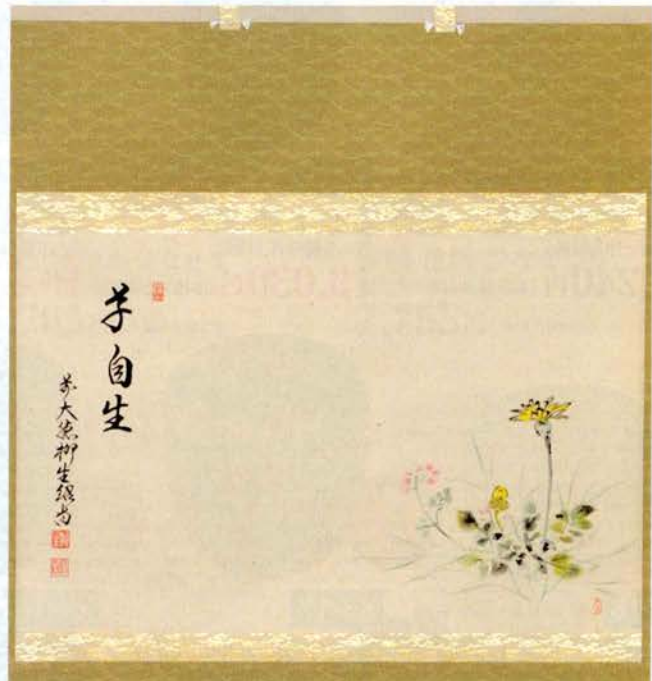 草自生
前大徳柳生紹尚